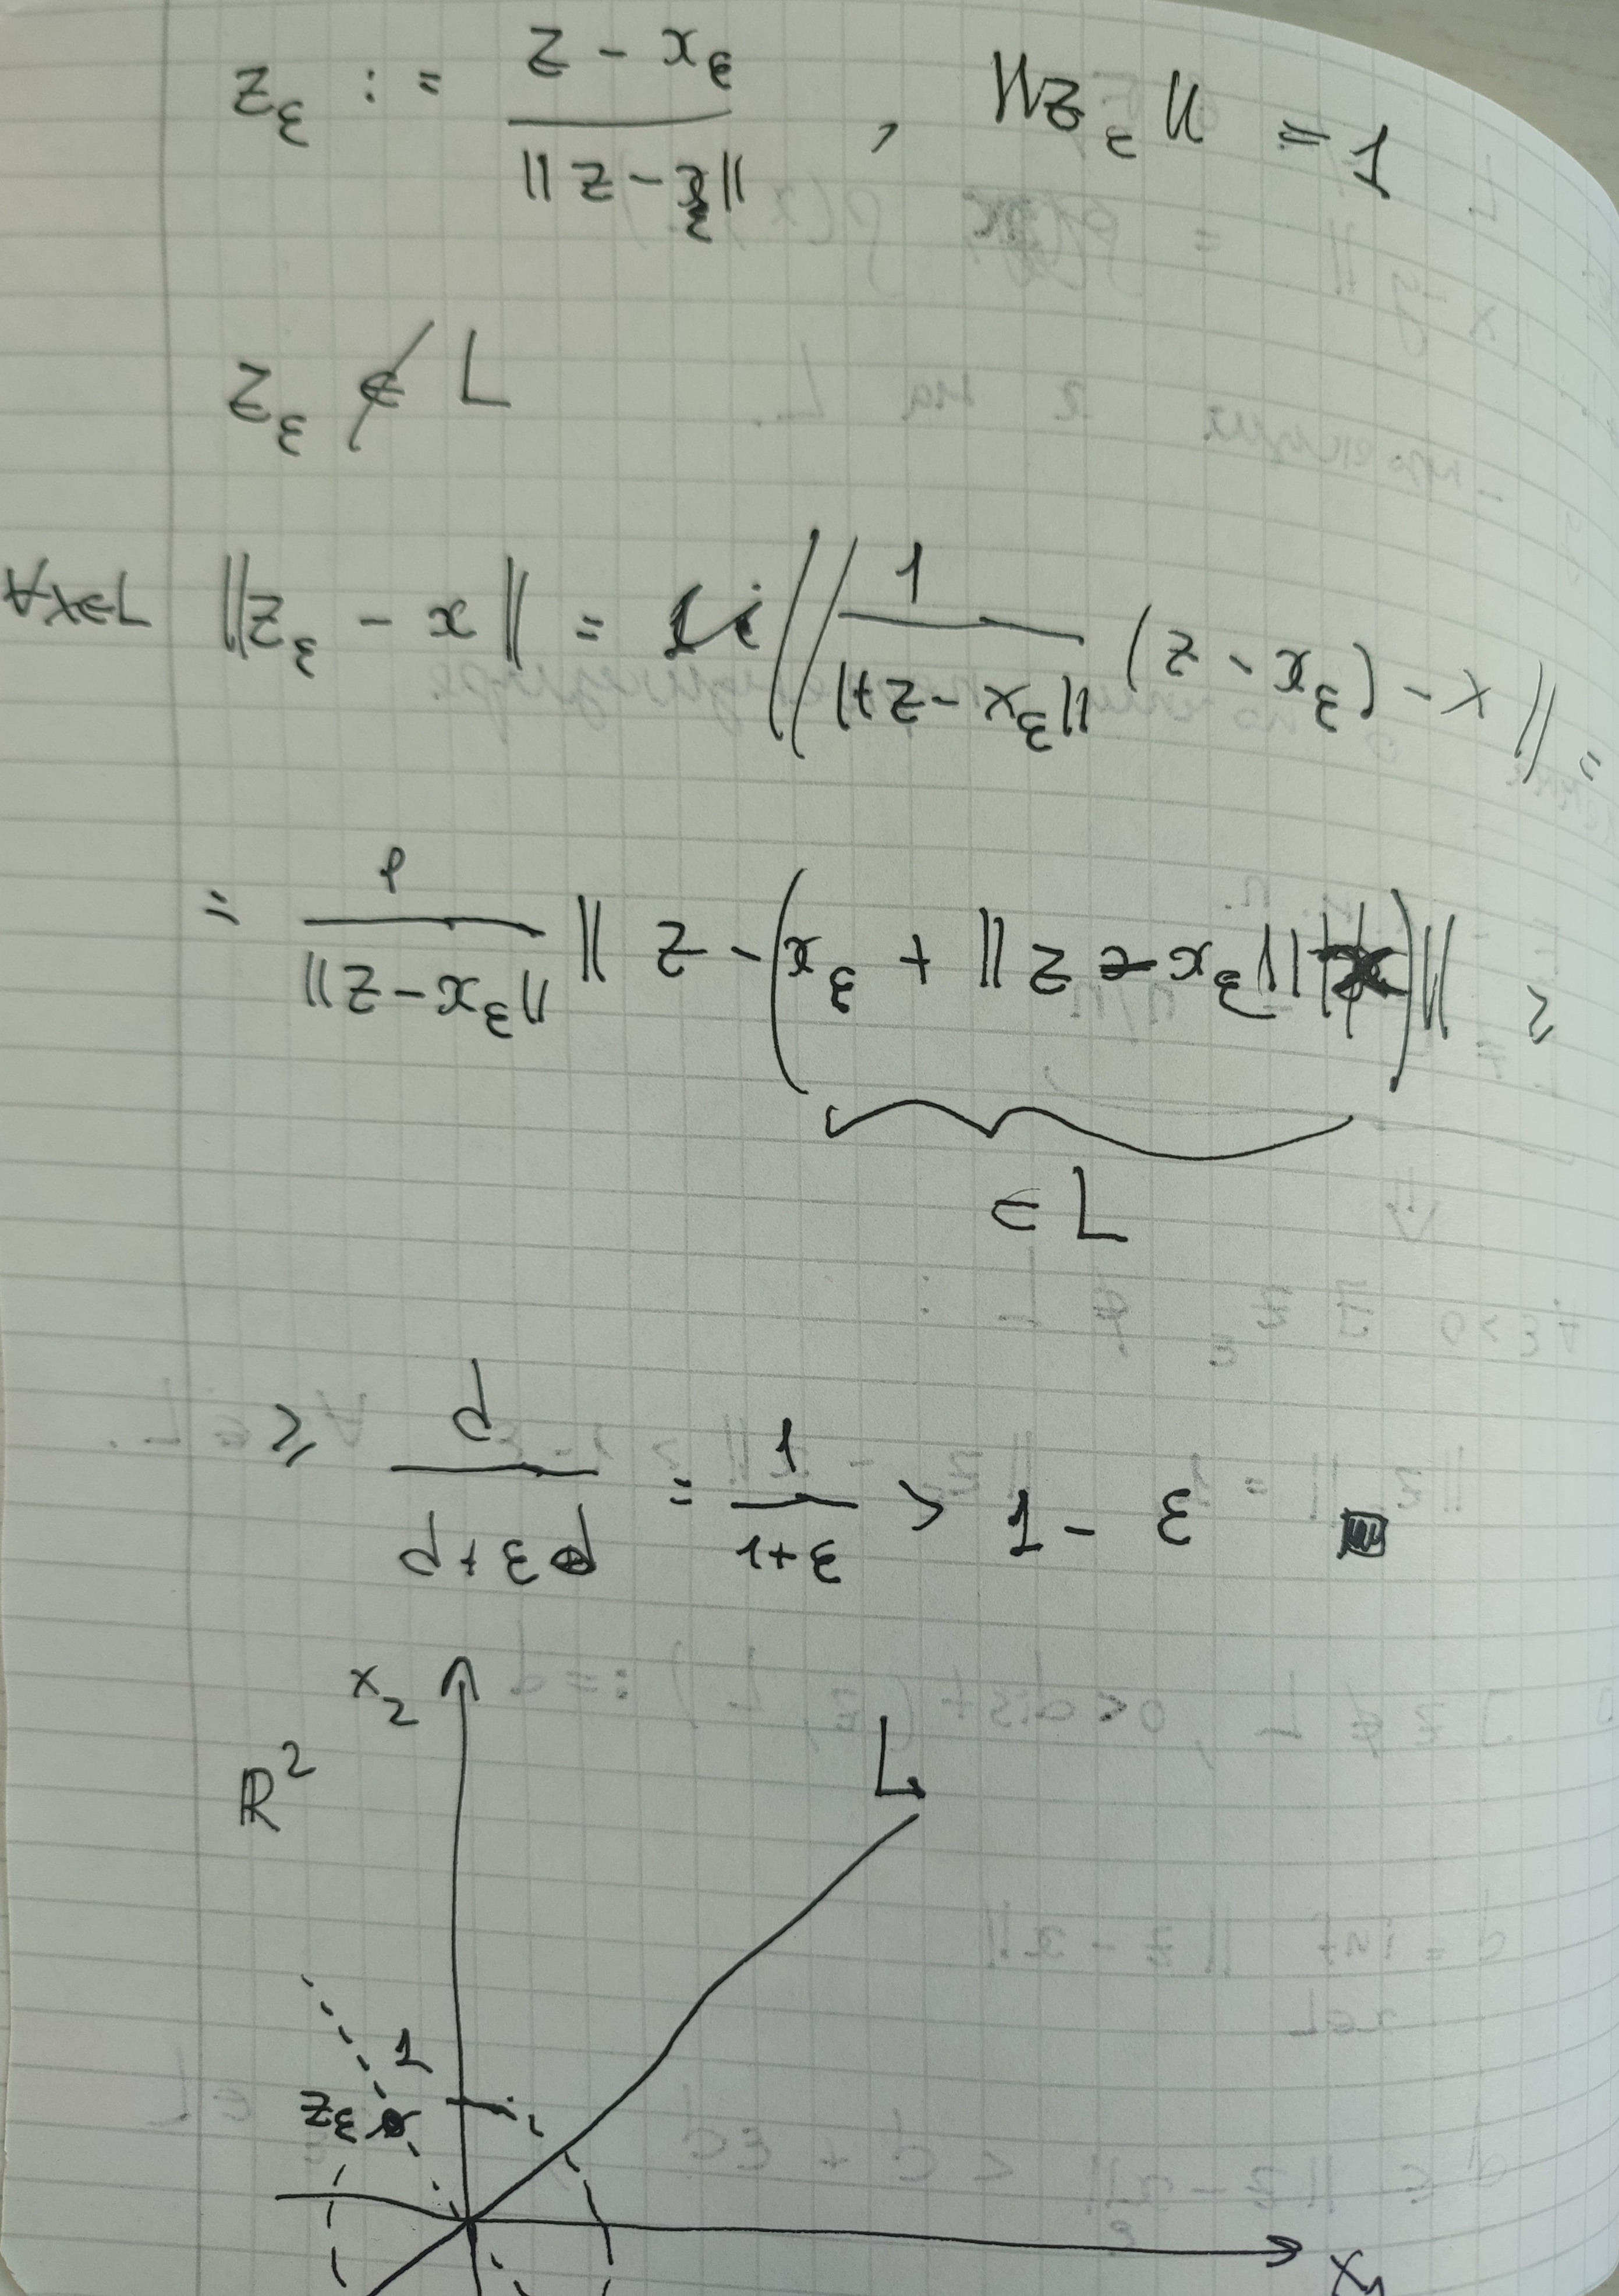 z_ε := (z - x_ε) / ||z - x_ε|| , ||z_ε|| = 1
z_ε ∉ L
∀x∈L ||z_ε - x|| = || 1 / ||z - x_ε|| (z - x_ε) - x || =
= 1 / ||z - x_ε|| || z - (x_ε + ||z - x_ε|| x) || ≥
∈ L
≥ d / (d + εd) = 1 / (1+ε) > 1 - ε
x_2
L
ℝ²
1
z_ε
x_1